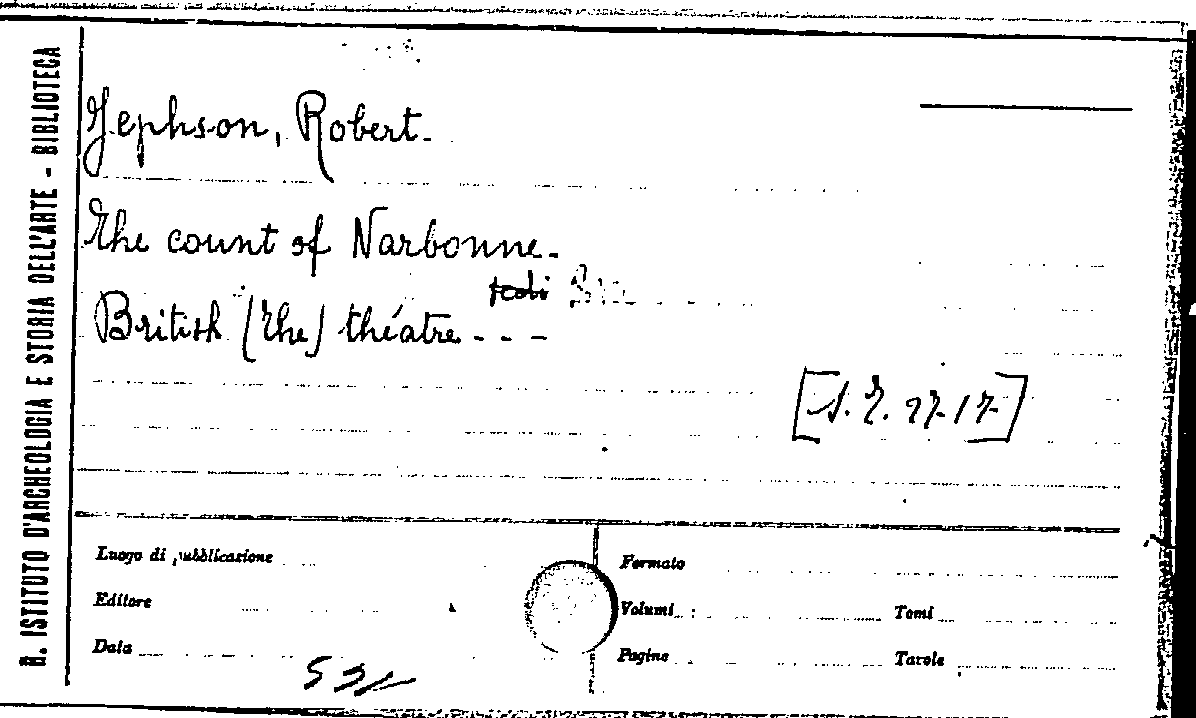 R. ISTITUTO D'ARCHEOLOGIA E STORIA DELL'ARTE - BIBLIOTECA
Jephson, Robert.
The count of Narbonne.
British (The) théatre - - -
Luogo di pubblicazione
Formato
Editore
Volumi
Tomi
Data
Pagine
Tavole